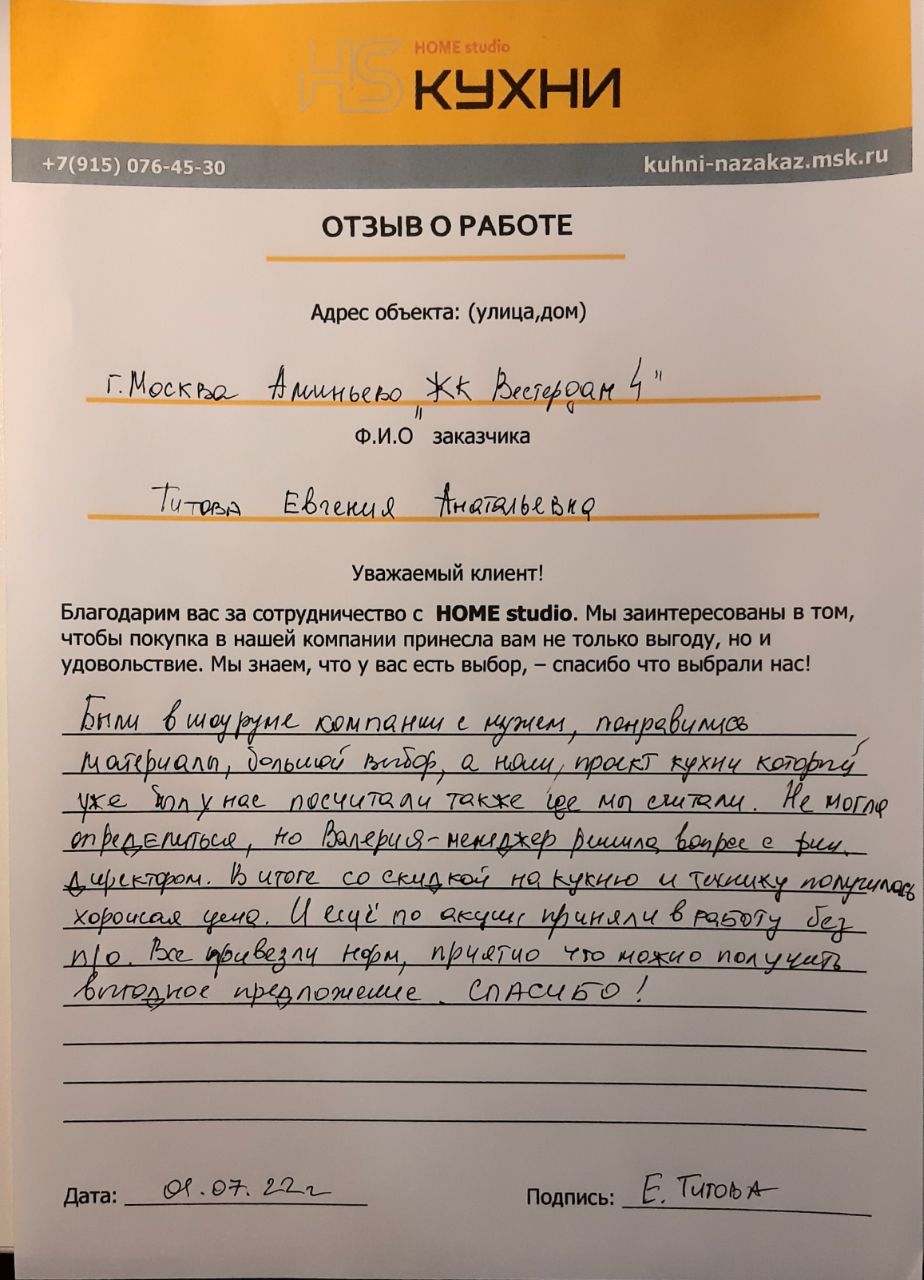 HS HOME studio
КУХНИ
+7(915) 076-45-30 kuhni-nazakaz.msk.ru
ОТЗЫВ О РАБОТЕ
Адрес объекта: (улица,дом)
г. Москва Аминьево "ЖК Вестердам 4"
Ф.И.О заказчика
Титова Евгения Анатальевна
Уважаемый клиент!
Благодарим вас за сотрудничество с HOME studio. Мы заинтересованы в том,
чтобы покупка в нашей компании принесла вам не только выгоду, но и
удовольствие. Мы знаем, что у вас есть выбор, – спасибо что выбрали нас!
Были в шоуруме компании с мужем, понравились
материалы, большой выбор, а нам, проект кухни который
уже был у нас посчитали также где мы считали. Не могла
определиться, но Валерия-менеджер решила вопрос с фин.
директором. В итоге со скидкой на кухню и технику получилась
хорошая цена. И ещё по акции приняли в работу без
п/о. Все привезли норм, приятно что можно получить
выгодное предложение. СПАСИБО!
Дата: 01.07.22г Подпись: Е. Титова